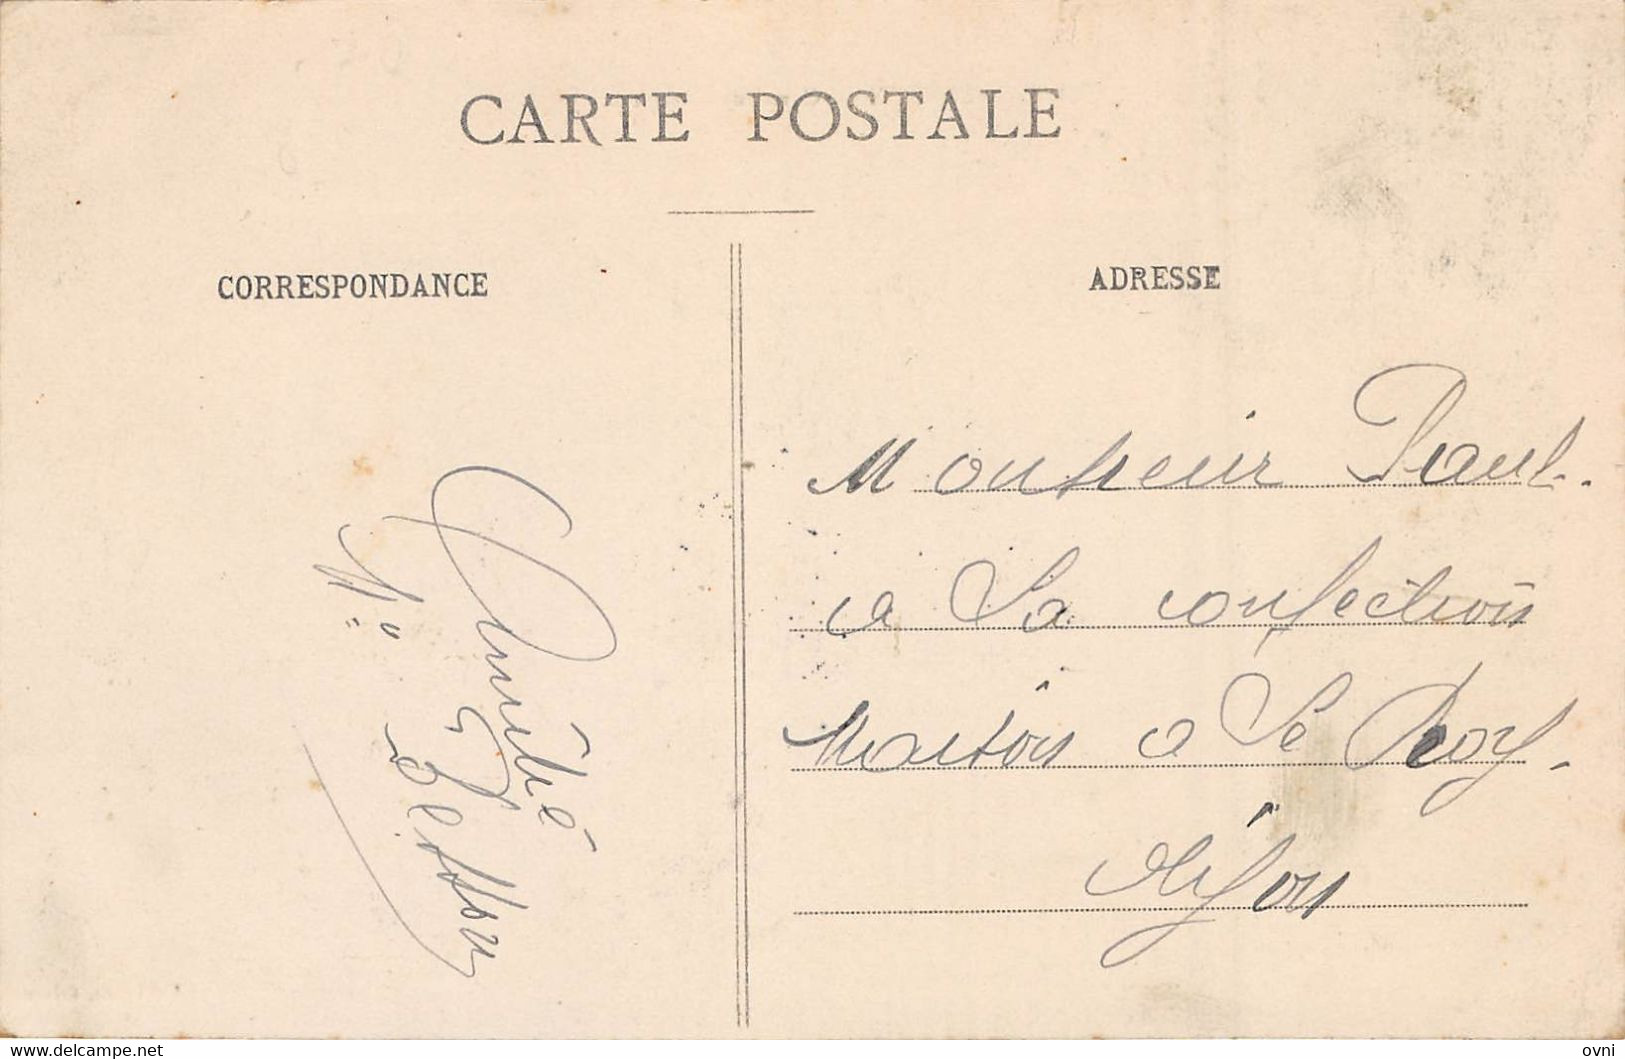 CARTE POSTALE
CORRESPONDANCE
ADRESSE
Monsieur Paul.
a La confection
Maison a Le Roy.
Dijon
Amitié
www.delcampe.net
ovni